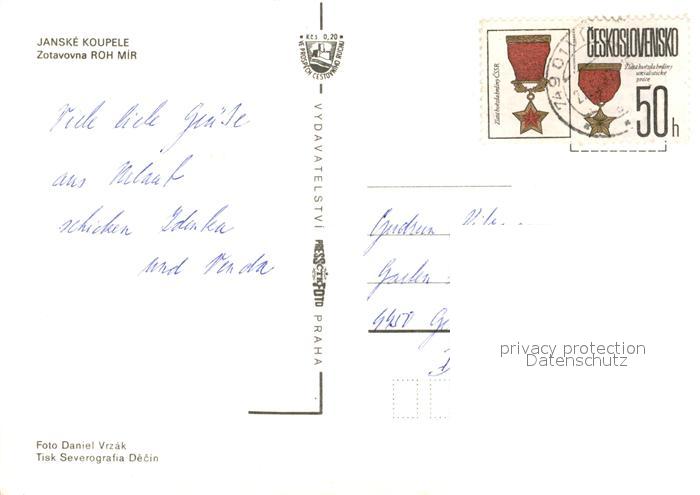 JANSKÉ KOUPELE
Zotavovna ROH MÍR
Kčs 0,20
VE PROSPĚCH CESTOVNÍHO RUCHU
Zlatá hvězda hrdiny ČSSR
ČESKOSLOVENSKO
Zlatá hvězda hrdiny
socialistické
práce
50h
749
Viele liebe Grüße
aus Urlaub
schicken Zdenka
und Venda
VYDAVATELSTVÍ
PRESSFOTO
PRAHA
Gudrun
privacy protection
Datenschutz
Foto Daniel Vrzák
Tisk Severografia Děčín